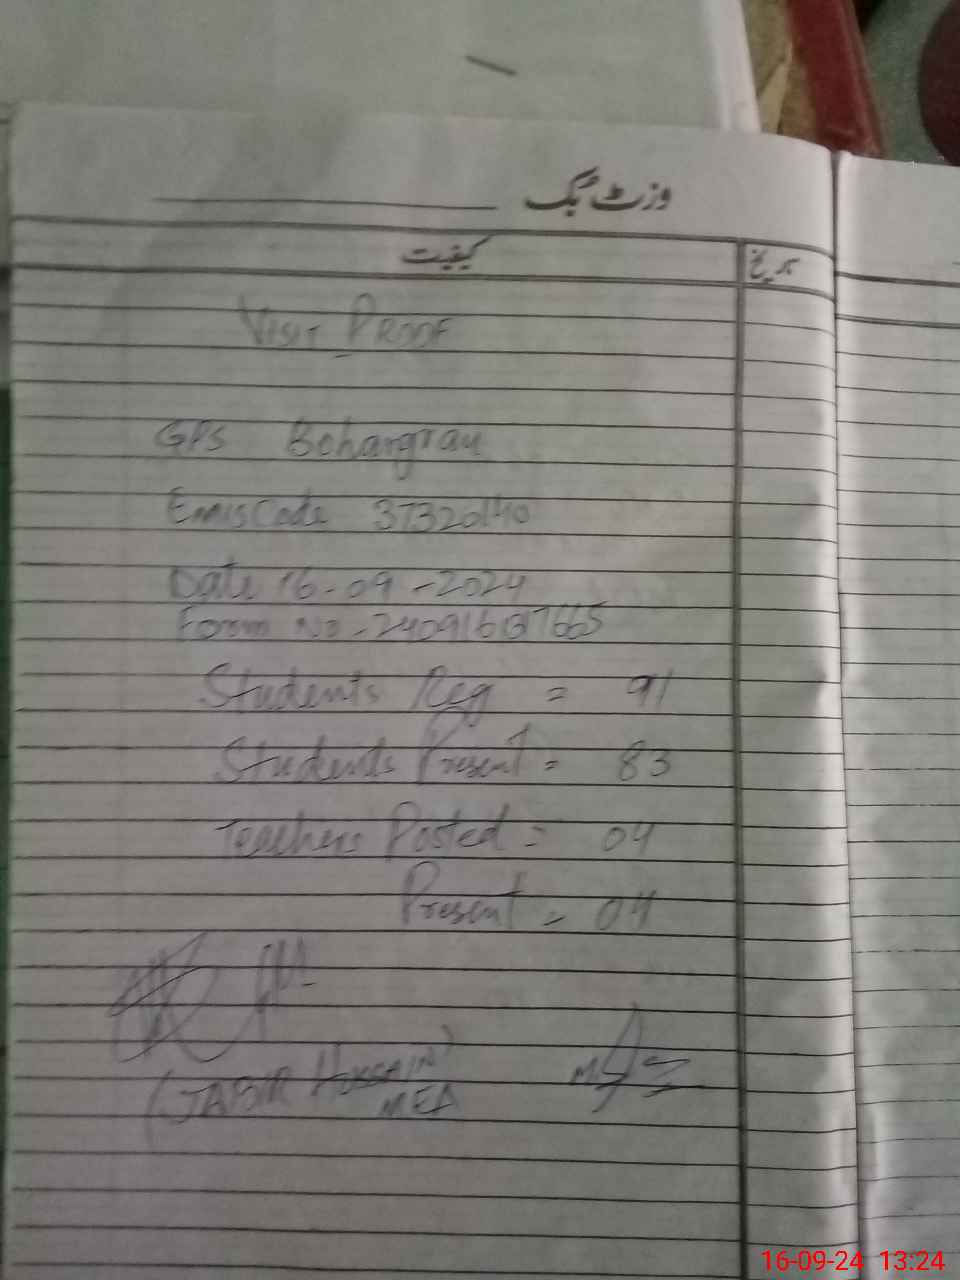 وزٹ بک
کیفیت تاریخ
VISIT PROOF
GPS Bohargran
Emis Code 37320140
Date 16-09-2024
Form No-
Students Reg = 91
Students Present = 83
Teachers Posted = 04
Present = 04
(JABIR HUSSAIN)
MEA
16-09-24 13:24